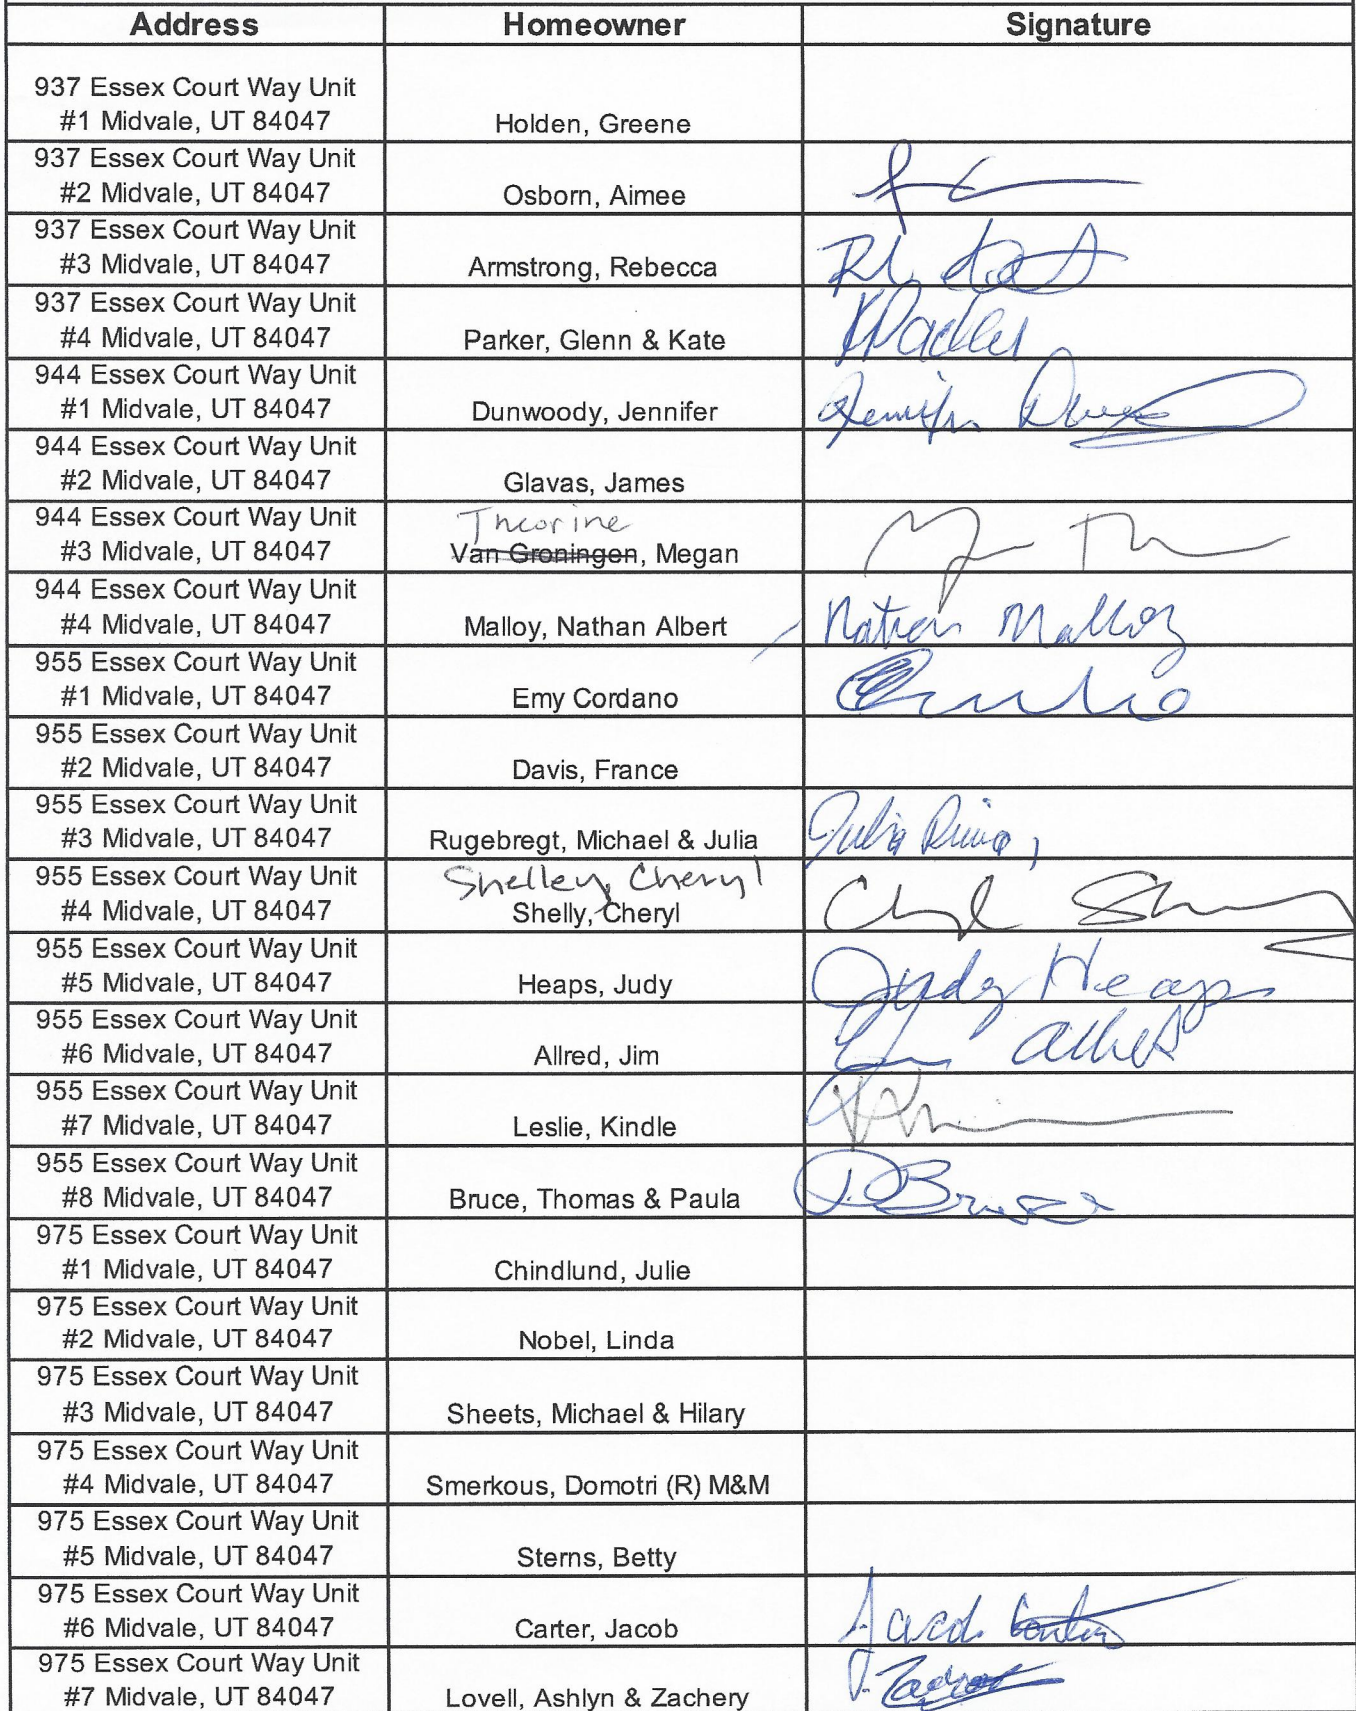 Address Homeowner Signature
937 Essex Court Way Unit
#1 Midvale, UT 84047 Holden, Greene
937 Essex Court Way Unit
#2 Midvale, UT 84047 Osborn, Aimee
937 Essex Court Way Unit
#3 Midvale, UT 84047 Armstrong, Rebecca
937 Essex Court Way Unit
#4 Midvale, UT 84047 Parker, Glenn & Kate
944 Essex Court Way Unit
#1 Midvale, UT 84047 Dunwoody, Jennifer Jennifer
944 Essex Court Way Unit
#2 Midvale, UT 84047 Glavas, James
944 Essex Court Way Unit Theorine
#3 Midvale, UT 84047 Van Groningen, Megan
944 Essex Court Way Unit
#4 Midvale, UT 84047 Malloy, Nathan Albert Nathan Malloy
955 Essex Court Way Unit
#1 Midvale, UT 84047 Emy Cordano
955 Essex Court Way Unit
#2 Midvale, UT 84047 Davis, France
955 Essex Court Way Unit
#3 Midvale, UT 84047 Rugebregt, Michael & Julia Julia
955 Essex Court Way Unit Shelley, Cheryl
#4 Midvale, UT 84047 Shelly, Cheryl
955 Essex Court Way Unit
#5 Midvale, UT 84047 Heaps, Judy Judy Heaps
955 Essex Court Way Unit
#6 Midvale, UT 84047 Allred, Jim
955 Essex Court Way Unit
#7 Midvale, UT 84047 Leslie, Kindle
955 Essex Court Way Unit
#8 Midvale, UT 84047 Bruce, Thomas & Paula P Bruce
975 Essex Court Way Unit
#1 Midvale, UT 84047 Chindlund, Julie
975 Essex Court Way Unit
#2 Midvale, UT 84047 Nobel, Linda
975 Essex Court Way Unit
#3 Midvale, UT 84047 Sheets, Michael & Hilary
975 Essex Court Way Unit
#4 Midvale, UT 84047 Smerkous, Domotri (R) M&M
975 Essex Court Way Unit
#5 Midvale, UT 84047 Sterns, Betty
975 Essex Court Way Unit
#6 Midvale, UT 84047 Carter, Jacob Jacob Carter
975 Essex Court Way Unit
#7 Midvale, UT 84047 Lovell, Ashlyn & Zachery